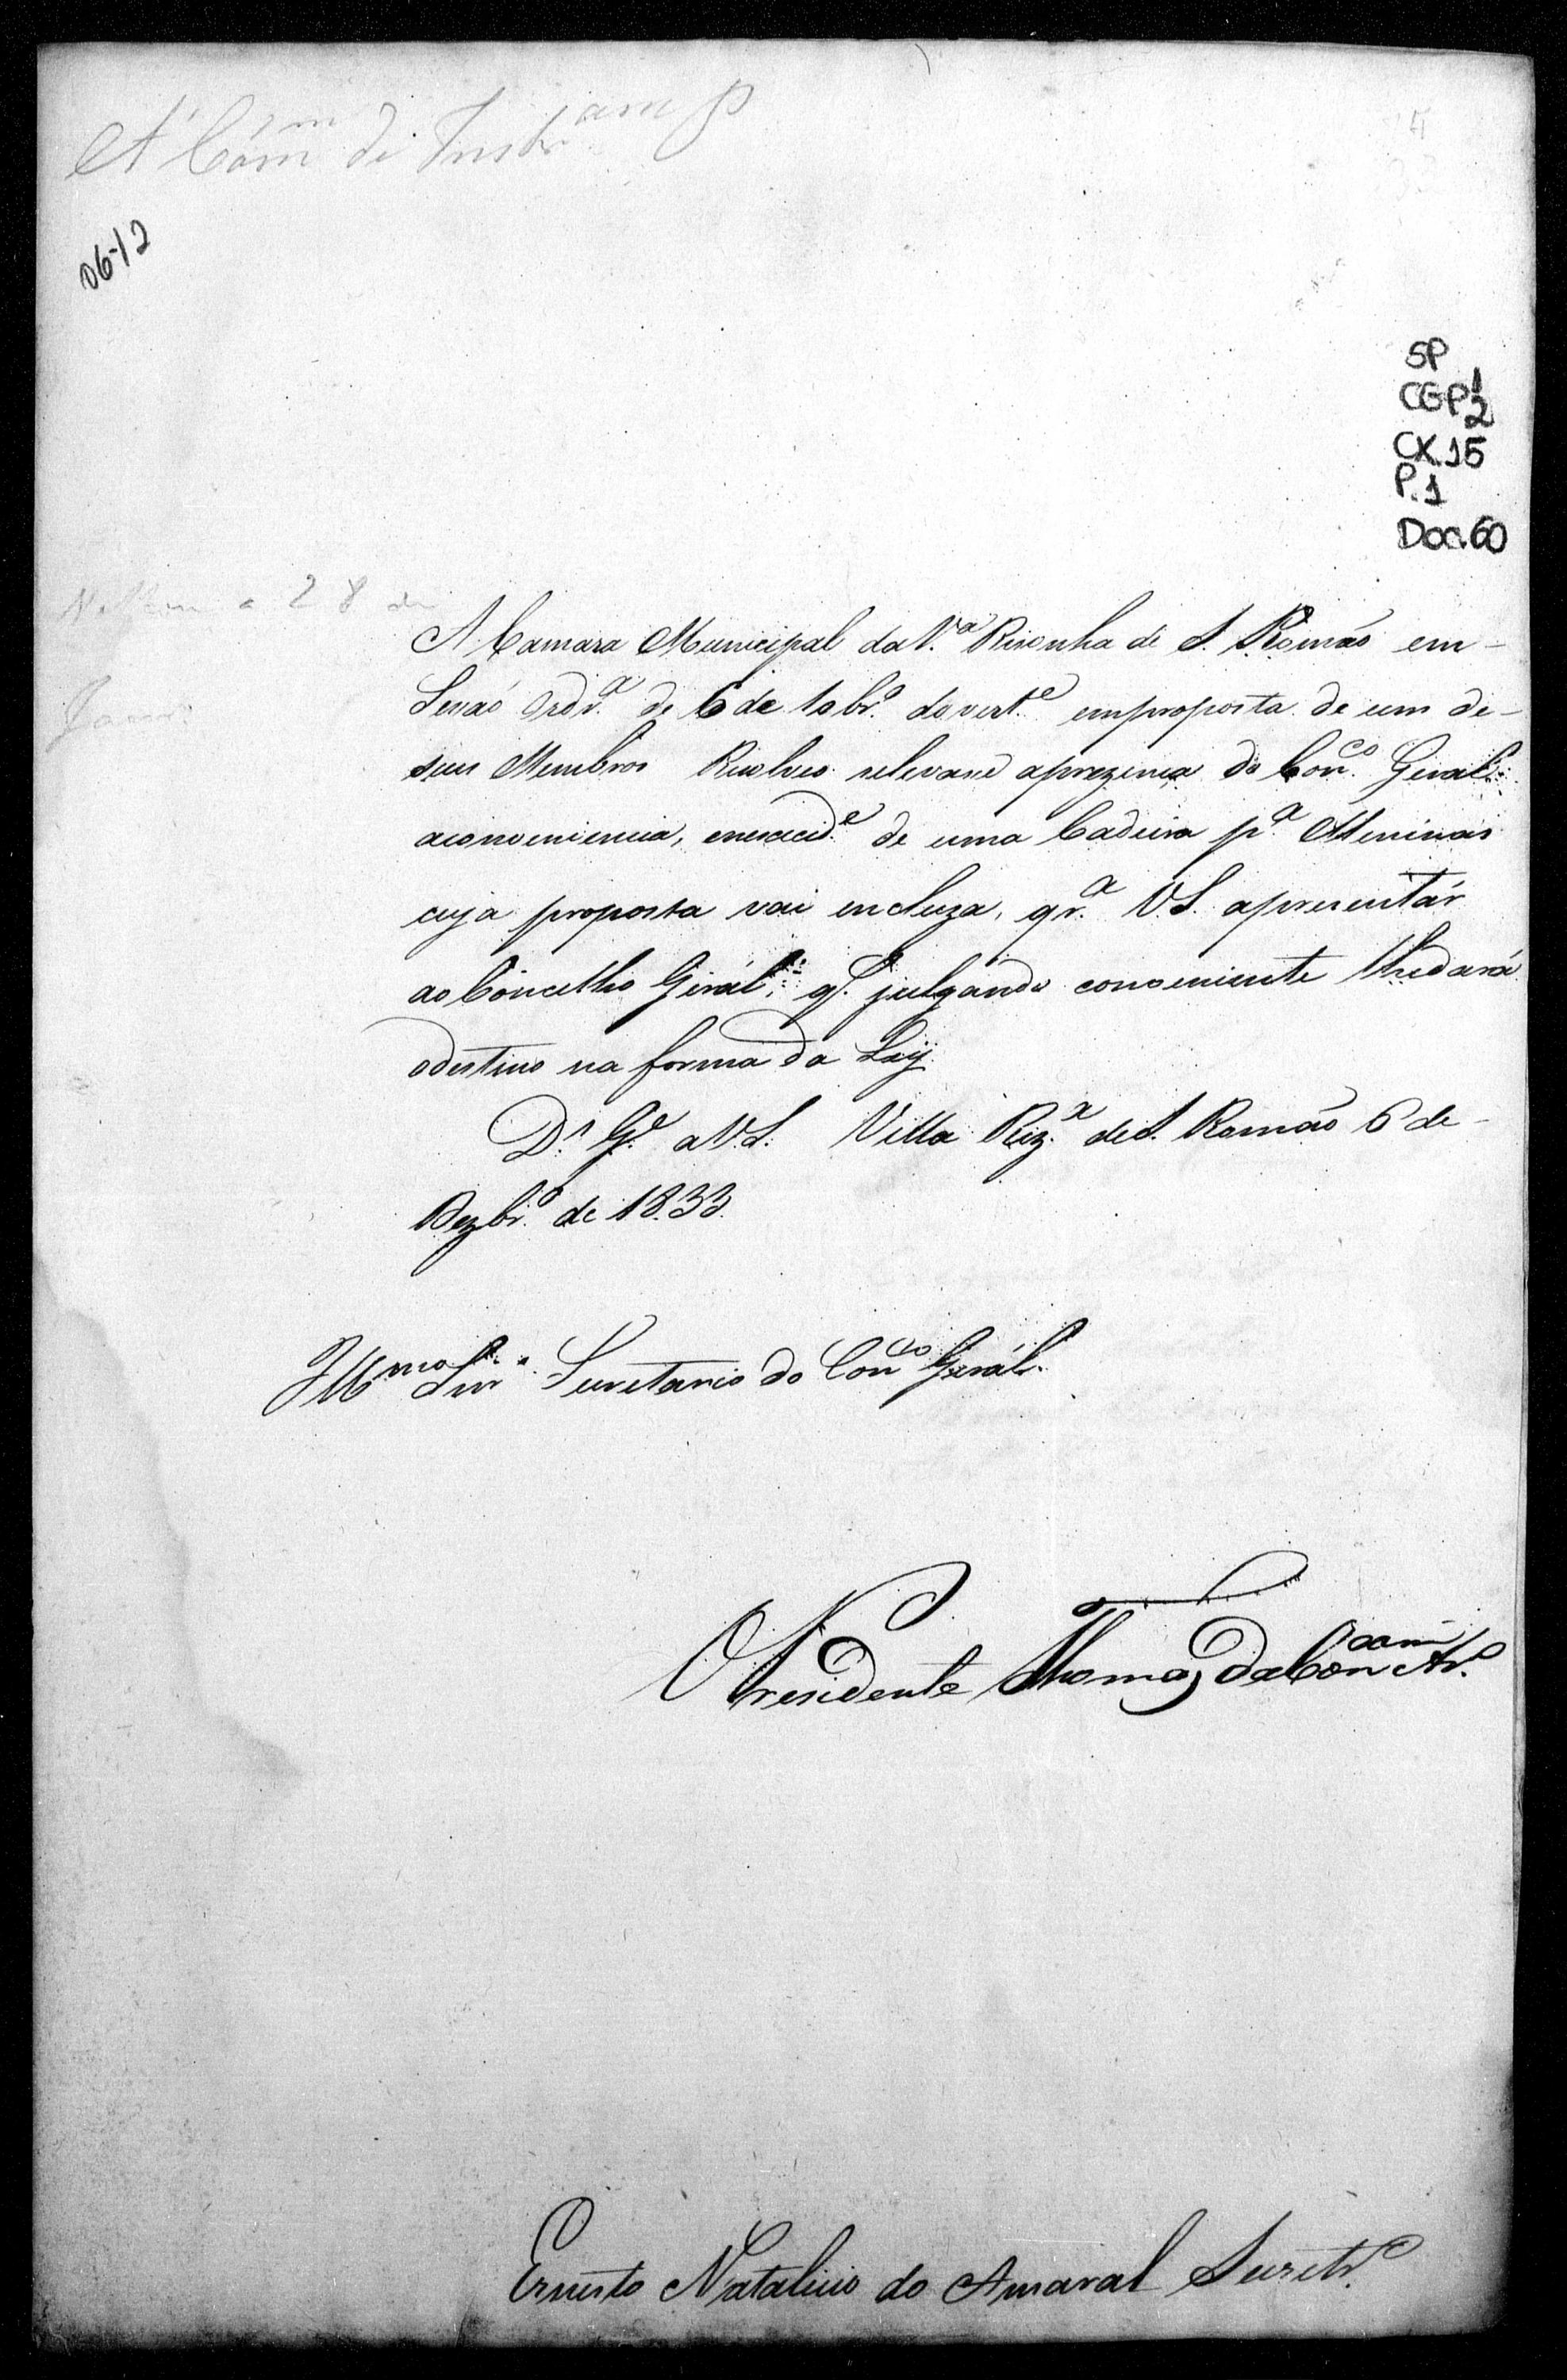 A' Com.m de Instr.
06-12
SP
CGP 1/2
CX.15
P.1
Doc.60
28 de
A Camara Municipal da V.ª Risonha de S. Romão em-
Sesaõ Ordr.ª de 6 de 10br.º do cort.e emproposta de um de-
seus Membros Rezolveo relevarse aprezença do Con.co Geral
aconveniencia, enesecid.e de uma Cadeira p.ª Meninas
cuja proposta vai encluza, qr.ª V.S. apresentár
ao Concelho Gerál, q. julgando conveniente lhedará
odestino na forma da Ley.
D.s G.e a V.S. Villa Riz.ª de S. Romão 6 de-
Dezbr.º de 1833.
Ill.mo Snr. Secretario do Con.co Gerál.
O Presidente Thomaz da Con.cam Ar.º
Ernesto Natalicio do Amaral Secretr.º